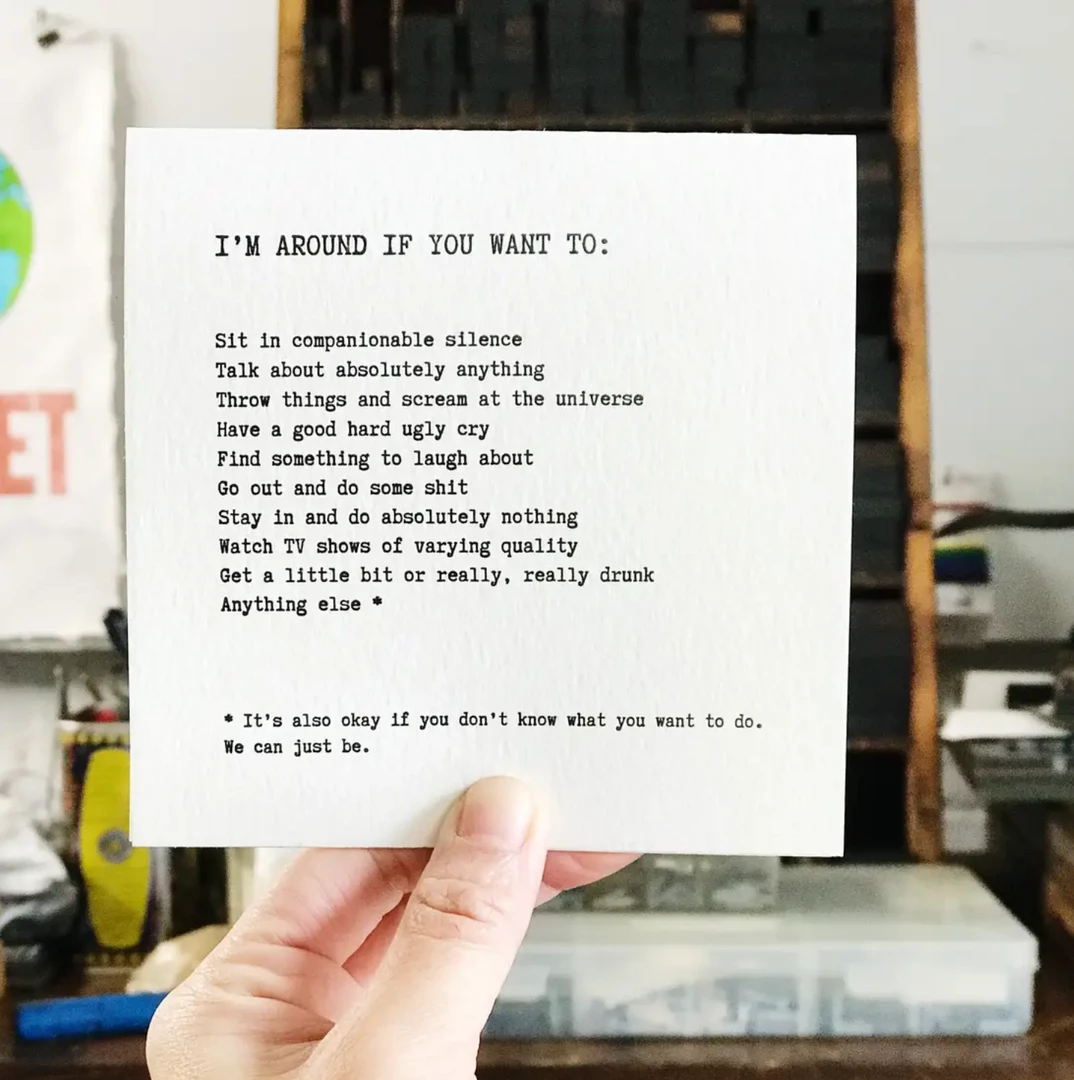 I'M AROUND IF YOU WANT TO:
Sit in companionable silence
Talk about absolutely anything
Throw things and scream at the universe
Have a good hard ugly cry
Find something to laugh about
Go out and do some shit
Stay in and do absolutely nothing
Watch TV shows of varying quality
Get a little bit or really, really drunk
Anything else *
* It's also okay if you don't know what you want to do.
We can just be.
ET